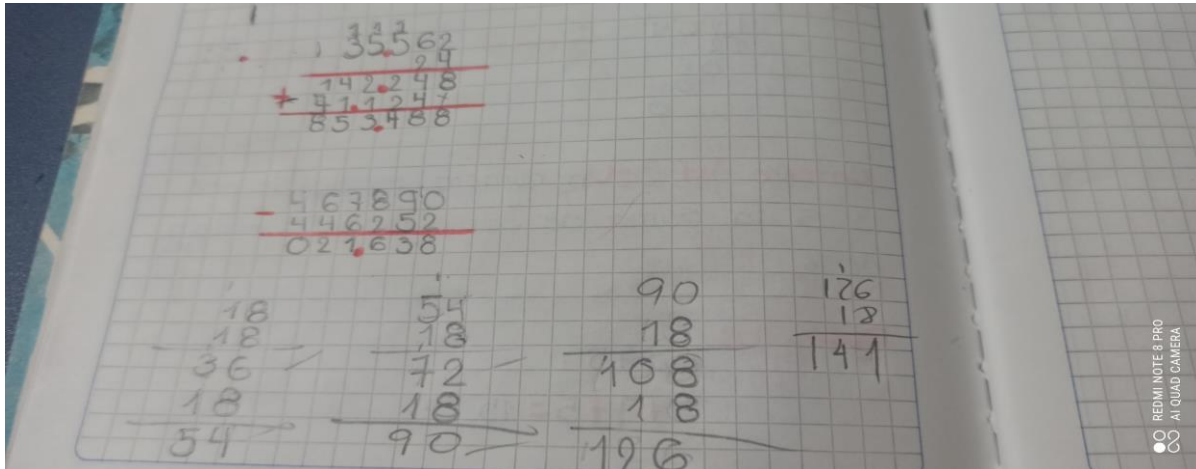 35.562
24
142.248
+ 71.124
853.488
- 467890
446252
021.638
18
18
36
18
54
54
18
72
18
90
90
18
108
18
126
126
18
141
REDMI NOTE 8 PRO
AI QUAD CAMERA